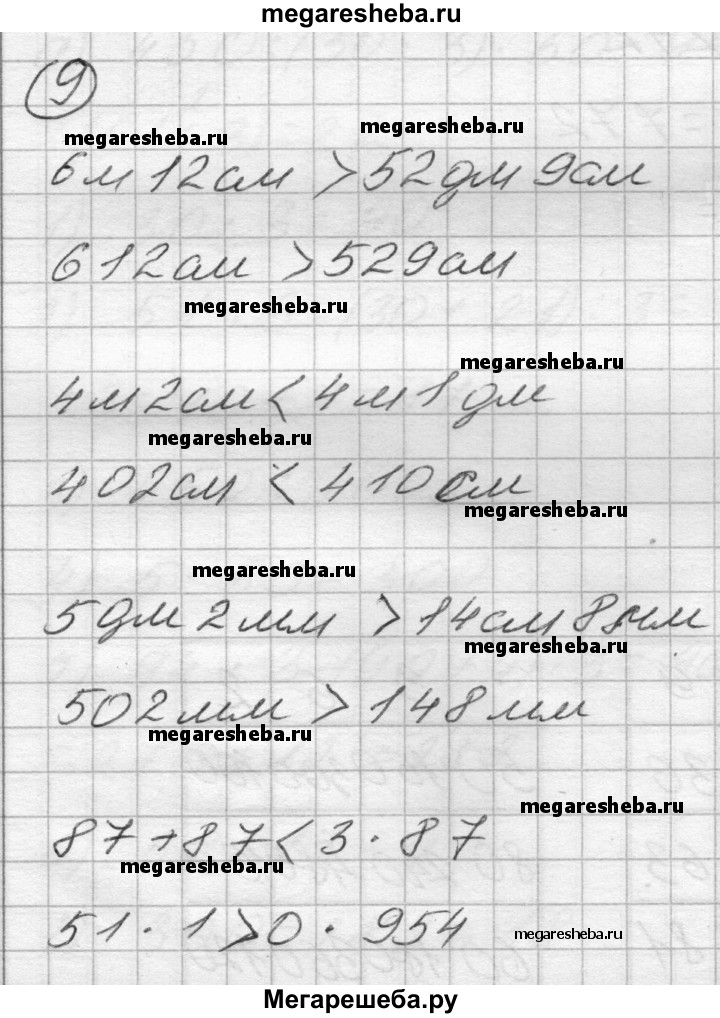 megaresheba.ru
9
megaresheba.ru
megaresheba.ru
6м 12см > 52дм 9см
612см > 529см
megaresheba.ru
megaresheba.ru
4м 2см < 4м 1дм
megaresheba.ru
402см < 410см
megaresheba.ru
megaresheba.ru
5дм 2мм > 14см 8мм
megaresheba.ru
502мм > 148мм
megaresheba.ru
megaresheba.ru
87+87 < 3·87
megaresheba.ru
51·1 > 0·954
megaresheba.ru
Мегарешеба.ру